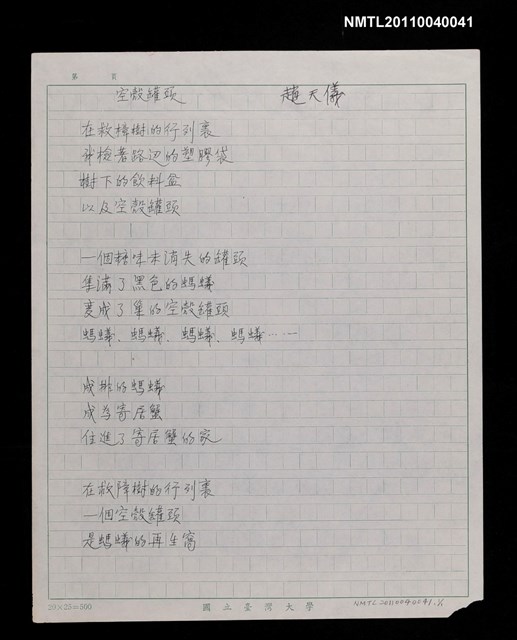 NMTL20110040041
第 頁
空殼罐頭 趙天儀
在救樟樹的行列裏
伴撿著路边的塑膠袋
樹下的飲料盒
以及空殼罐頭
一個糖味未消失的罐頭
集滿了黑色的螞蟻
變成了巢的空殼罐頭
螞蟻、螞蟻、螞蟻、螞蟻……
成排的螞蟻
成為寄居蟹
住進了寄居蟹的家
在救樟樹的行列裏
一個空殼罐頭
是螞蟻的再生窩
20×25=500 國立臺灣大學 NMTL20110040041